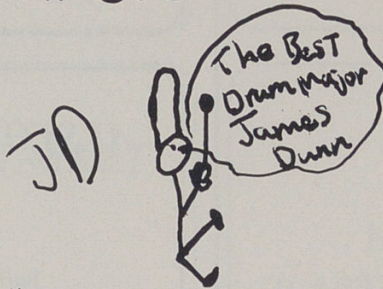 JD
The BEST
Drum Major
James
Dunn